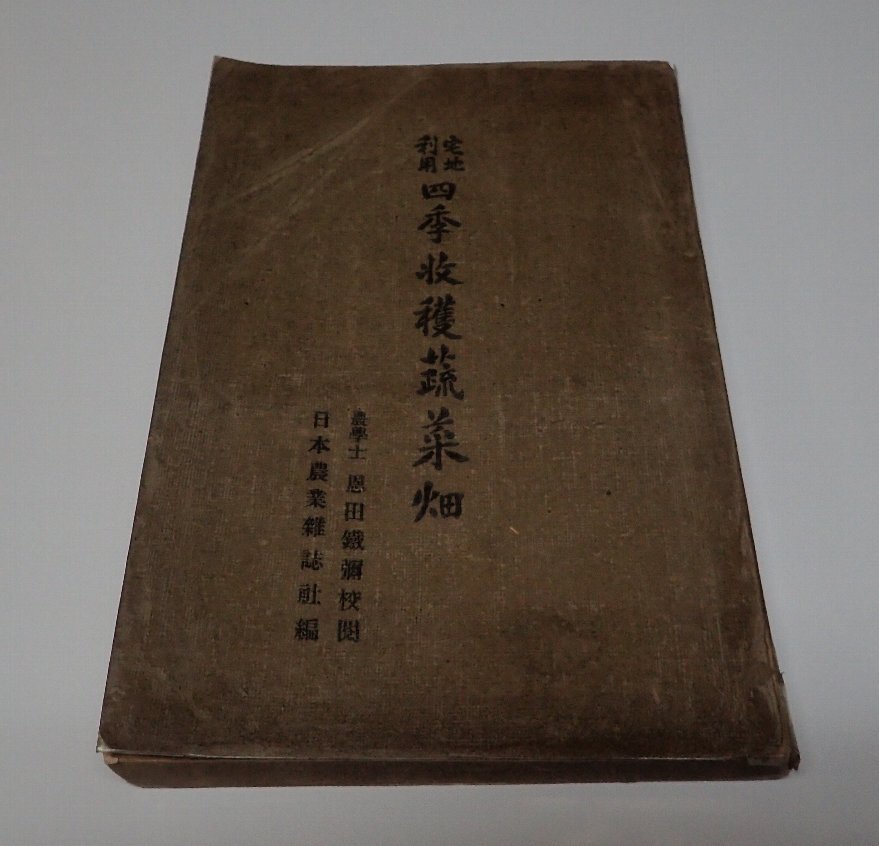 宅地
利用
四季收穫蔬菜畑
農學士 恩田鐵彌校閲
日本農業雜誌社編